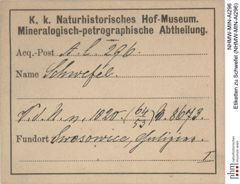 K. k. Naturhistorisches Hof-Museum.
Mineralogisch-petrographische Abtheilung.
Acq.-Post A. l. 296
Name Schwefel.
V. d. M. n. 1020. (64/53) G. 3673.
Fundort Swosowice, Galizien
I
NHMW-MIN-AI296
Etiketten zu Schwefel (NHMW-MIN-AI296)